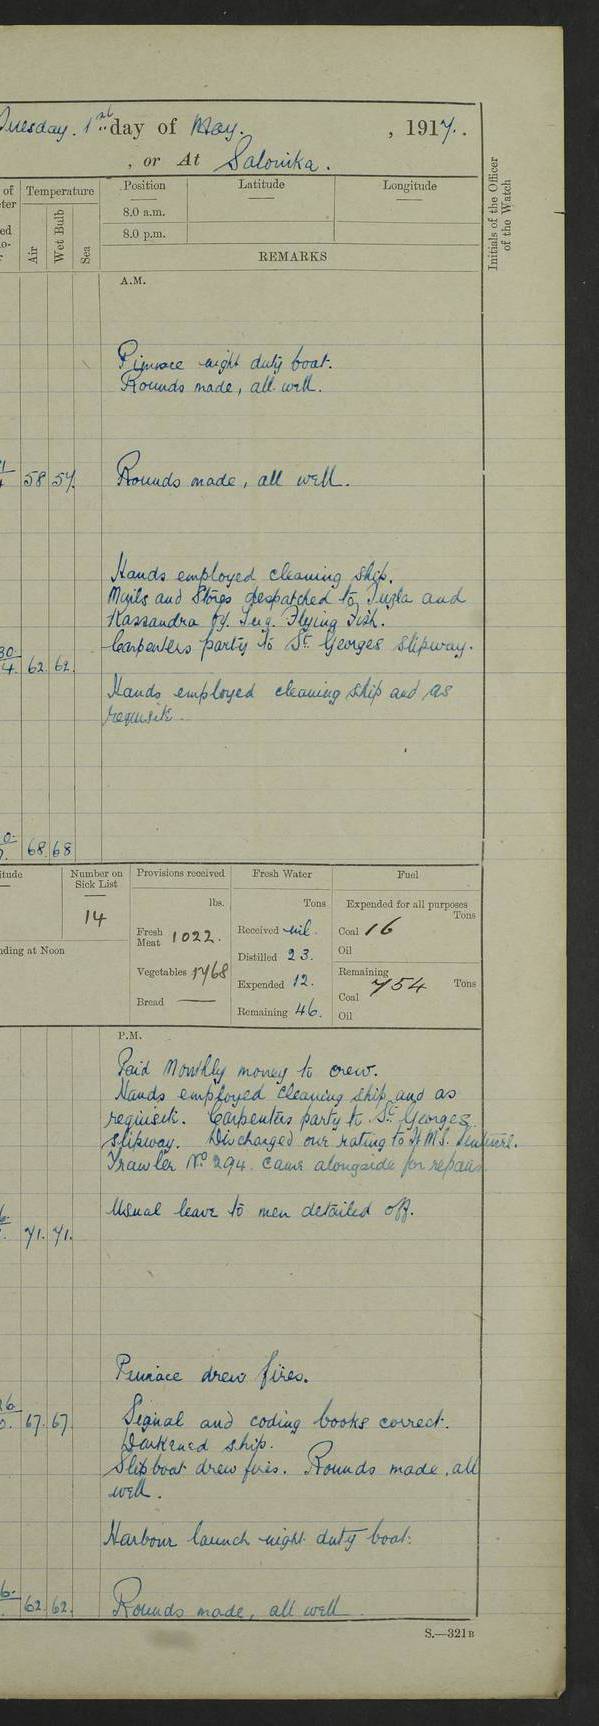 Tuesday. 1st day of May. , 1917.
, or At Salonika.
of Temperature Position Latitude Longitude
Air Wet Bulb Sea
8.0 a.m.
8.0 p.m.
Initials of the Officer
of the Watch
REMARKS
A.M.
Pinnace night duty boat.
Rounds made, all well.
58 57. Rounds made, all well.
Hands employed cleaning ship.
Mails and Stores despatched to Tuzla and
Kassandra by Tug. Flying Fish.
Carpenters party to St. Georges slipway.
62. 62.
Hands employed cleaning ship and as
requisite.
68. 68
Number on
Sick List
14
Provisions received
lbs.
Fresh
Meat 1022.
Vegetables 1768
Bread —
Fresh Water
Tons
Received nil.
Distilled 23.
Expended 12.
Remaining 46.
Fuel
Expended for all purposes
Tons
Coal 16
Oil
Remaining
Coal 754 Tons
Oil
at Noon
P.M.
Paid Monthly money to crew.
Hands employed cleaning ship and as
requisite. Carpenters party to St. Georges
slipway. Discharged one rating to H.M.S.
Trawler No. 294. came alongside for repairs
Usual leave to men detailed off.
71. 71.
Pinnace drew fires.
67. 67. Signal and coding books correct.
Darkened ship.
Slipboat drew fires. Rounds made, all
well.
Harbour launch night duty boat.
62. 62. Rounds made, all well
S.—321B